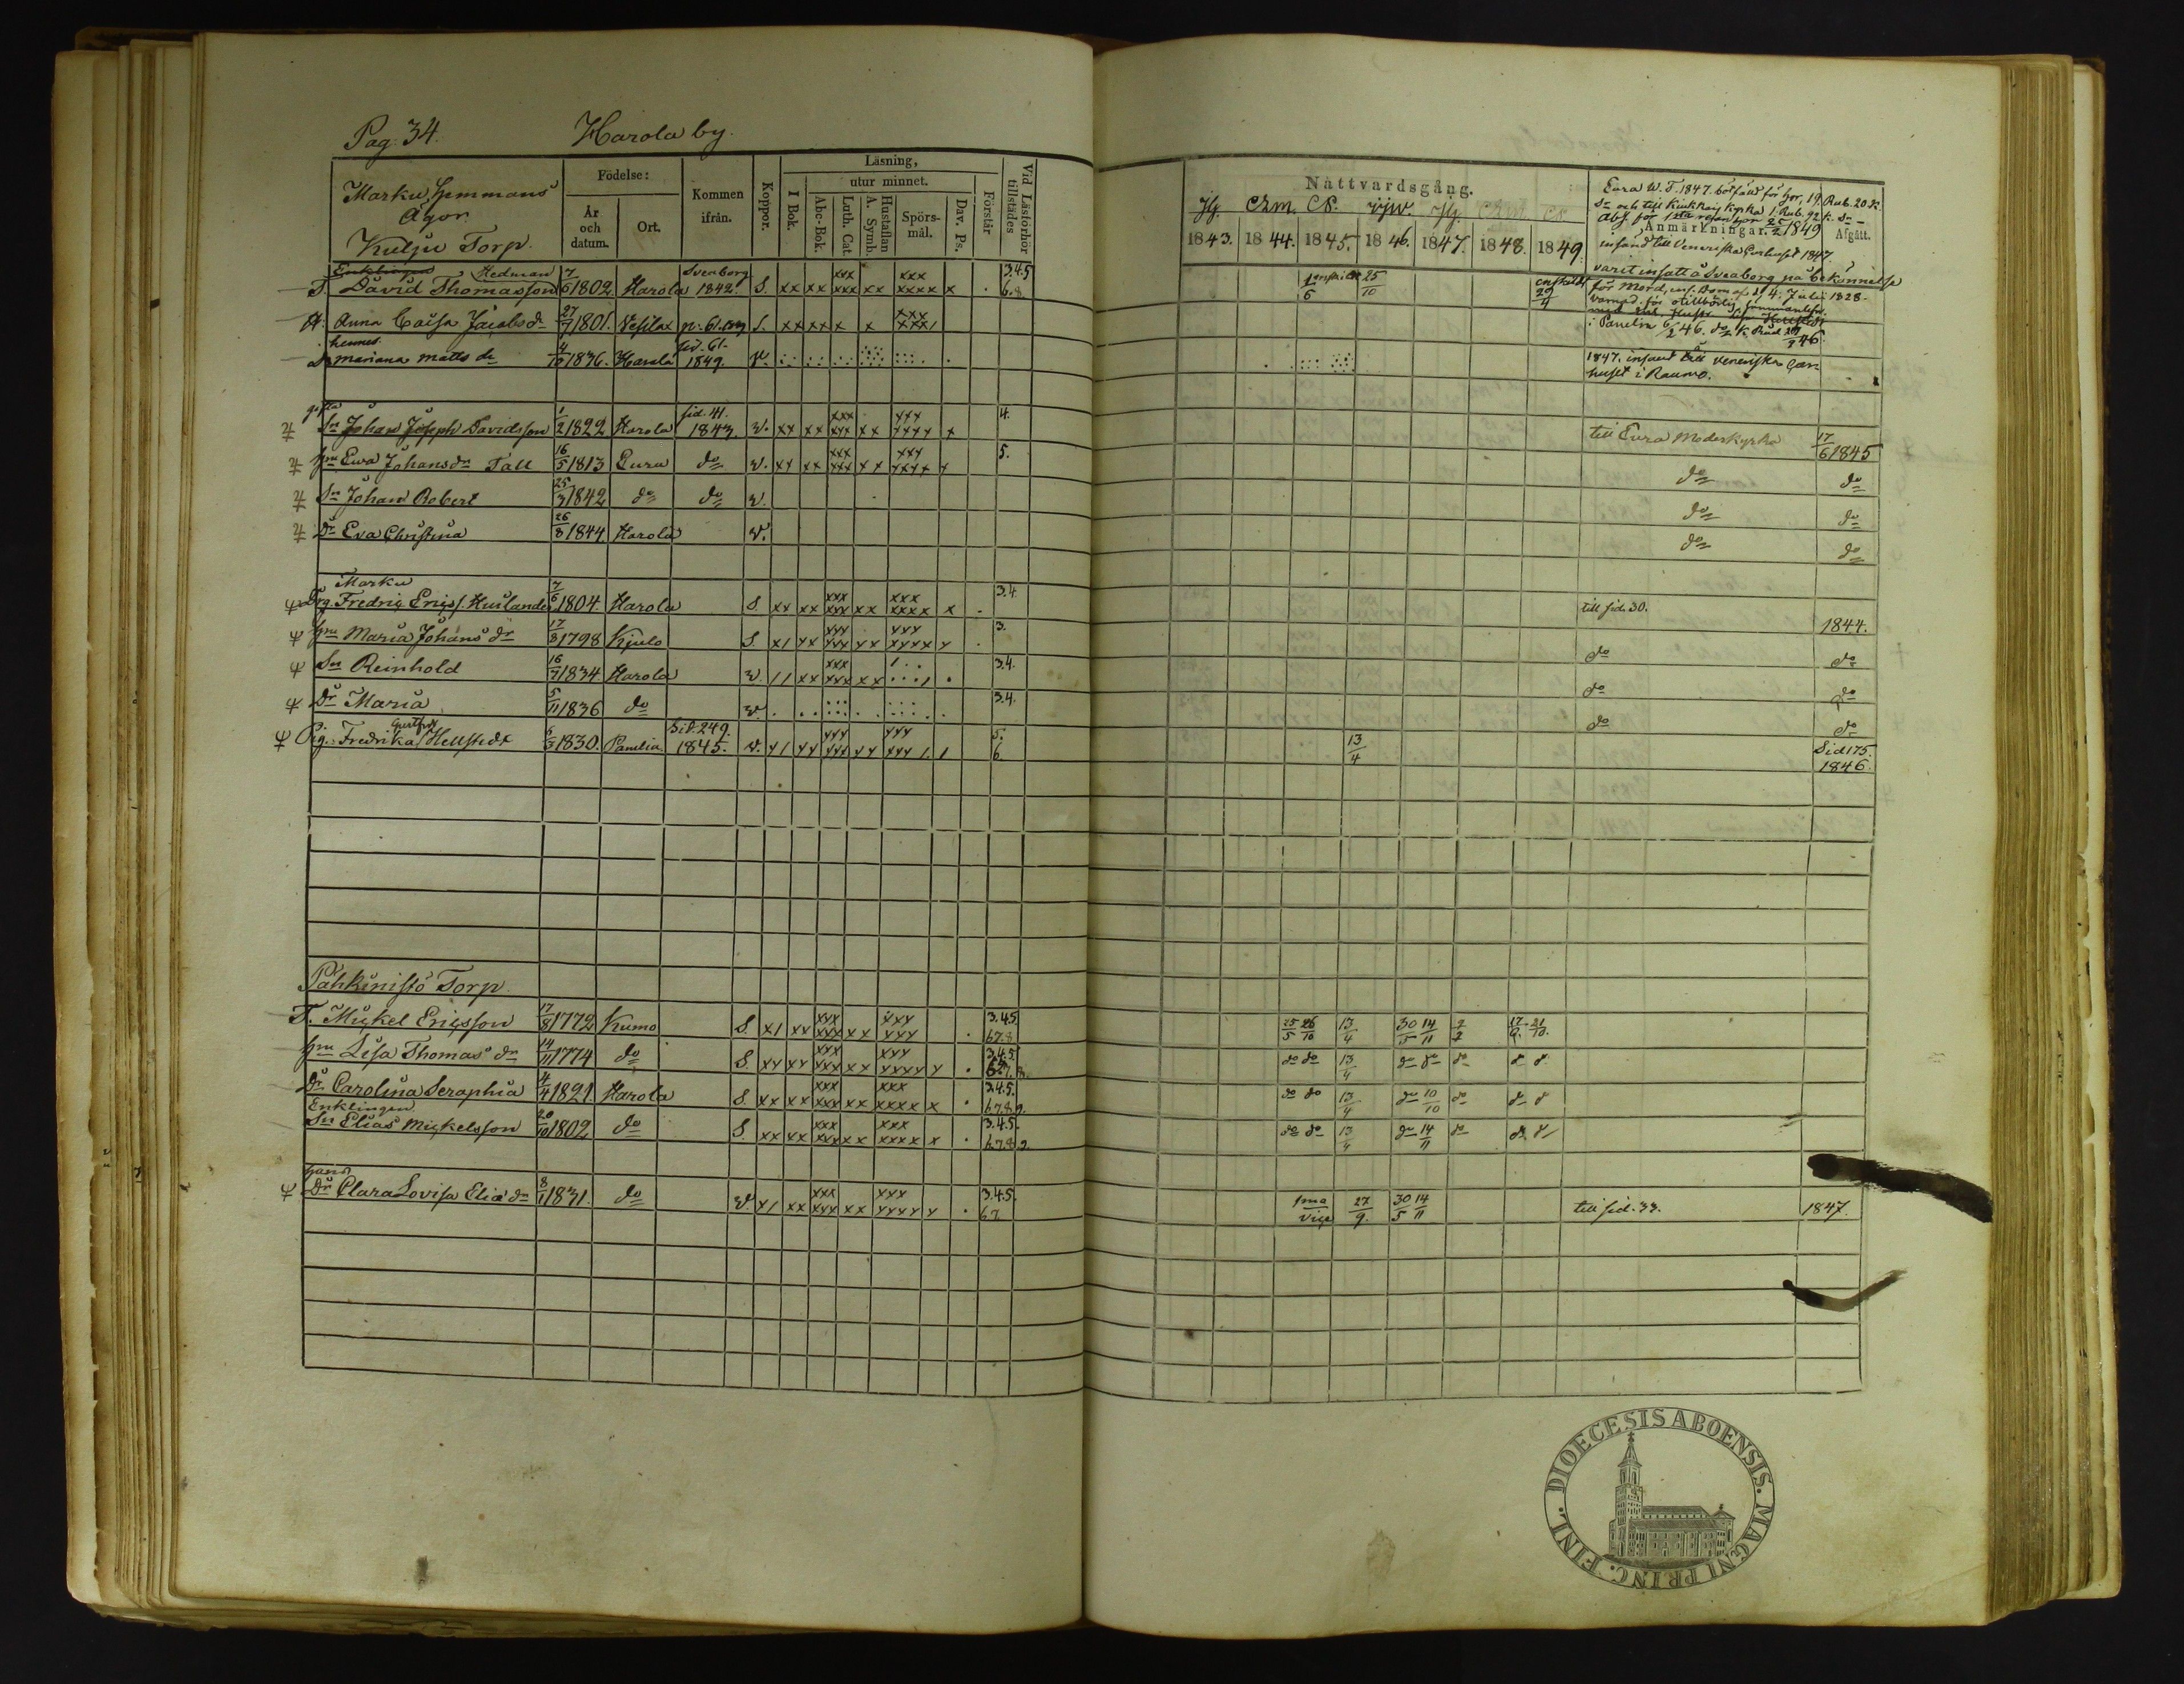 Pag. 34. Harola by.
Marku Hemmans
Ägor
Kulju Torp.
Födelse:
År och datum.
Ort.
Kommen ifrån.
Koppor.
Läsning,
utur minnet.
I Bok.
Abc-Bok.
Luth. Cat.
A. Symb.
Hustaflan
Spörs-mål.
Dav. Ps.
Förstår
Vid Läsförhör tillstädes
Nattvardsgång.
1843. 1844. 1845. 1846. 1847. 1848. 1849.
Eura W. T. 1847. bötfäld för hor, 19 Rub. 20 K.
Sr och till Kiukkais Kyrka 1. Rub. 92 k. Sr
Abs. för 1sta resan hor 25/2 1849
Anmärkningar.
Afgått.
insänd till Veneriska Curhuset 1847.
Enklingen Hedman Sveaborg
T. David Thomasson 7/6 1802. Harola 1842. S. xx xx xxx xxx xx xxx xxxx x 3.4.5 6.8. 25/10 enskildt 29/4
varit insatt å Sveaborg på bekännelse
för Mord, enl. Domaf d. 4. Julii 1828.
varnad för otillbörlig
i Panelia 6/2 46. do K. Råd
H. Anna Caisa Jacobs dr 27/7 1801. Vesilax p. 61. S.
hennes sid. 61.
dr Mariana Matts dr 1836. Harola 1849. V.
1847. insänd till veneriska Cur-
huset i Raumo.
gifta sid. 41.
Sn Johan Joseph Davidsson 1/2 1822 Harola 1843. v. xx xx xxx xxx xx xxx xxxx x 4. till Eura Moderkyrka 17/6 1845
Hru Ewa Johansdr Tall 16/5 1813 Eura do v. xx xx xxx xxx xx xxx xxxx x 5. do do
Sn Johan Robert 25/3 1842 do do v. do do
Dr Eva Christina 26/3 1844 Harola v. do do
Marku
Fredric Ericss. Huslander 7/6 1804. Harola S. xx xx xxx xxx xx xxx xxxx x 3.4. till sid. 30. 1844.
Hru Maria Johans dr 17/8 1798 Kjulo S. x/ xx xxx xxx xx xxx xxxx x 3. do do
Sn Reinhold 16/7 1834 Harola v. // xx xxx xxx xx 3.4. do do
Dr Maria 5/11 1836 do v. 3.4. do do
Gustfva Sid. 249.
Pig. Fredrika Hellstedt 6/3 1830. Panelia 1845. v. x/ xx xxx xxx xx xxx xxx / / 5. 6 13/4 Sid 175. 1846.
Pähkinistö Torp.
T. Mickel Ericsson 17/8 1772 Kumo S. x/ xx xxx xxx xx xxx xxx 3.4.5. 6.7.8 25/5 26/10 13/4 30/5 14/11 2/7
Hru Lisa Thomas dr 14/11 1774 do S. xx xx xxx xxx xx xxx xxxx x 3.4.5. 6.7.8. do do 13/4 do do do
Dr Carolina Seraphia 4/4 1821. Harola S. xx xx xxx xxx xx xxx xxxx x 3.4.5. 6.7.8.9. do do 13/4 do 10/10 do
Enklingen
Sn Elias Mickelsson 20/10 1802 do S. xx xx xxx xxx xx xxx xxxx x 3.4.5. 6.7.8.9. do do 13/4 do 14/11 do
hans
Dr Clara Lovisa Elias dr 8/1 1831. do v. x/ xx xxx xxx xx xxx xxxx x 3.4.5. 6.7. 1ma vice 27/9. 30/5 14/11 till sid. 33. 1847.
DIOECESIS ABOENSIS. MAGNI PRINC. FINL.